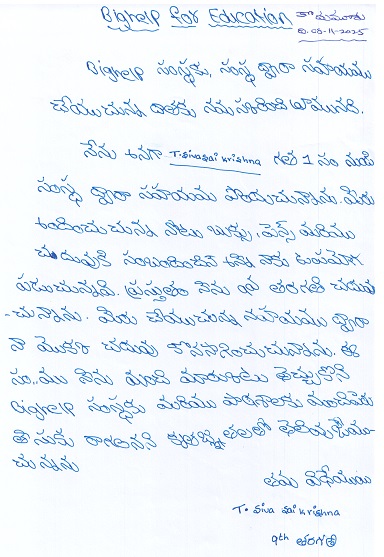 Bighelp for Education
కొడుమూరు
ది. 08-11-2025
Bighelp సంస్థకు, సంస్థ ద్వారా సహాయము
చేయుచున్న దాతకు నమస్కరించి వ్రాయునది.
నేను అనగా T. Siva sai krishna గత 1 సం నుండి
సంస్థ ద్వారా సహాయము పొందుచున్నాను. మీరు
అందించుచున్న నోటు బుక్సు, పెన్స్ మరియు
చదువుకి సంబంధించినవి నాకు ఉపయోగ
పడుచున్నవి. ప్రస్తుతం నేను 9వ తరగతి చదువు
-చున్నాను. మీరు చేయుచున్న సహాయము ద్వారా
నా యొక్క చదువు కొనసాగించుచున్నాను. ఈ
సం..ము నేను మంచి మార్కులు తెచ్చుకొని
Bighelp సంస్థకు మరియు పాఠశాలకు మంచిపేరు
తీసుకు రాగలనని కృతజ్ఞతలతో తెలియజేయు
చున్నాను
తమ విధేయుడు
T. Siva sai krishna
9th తరగతి